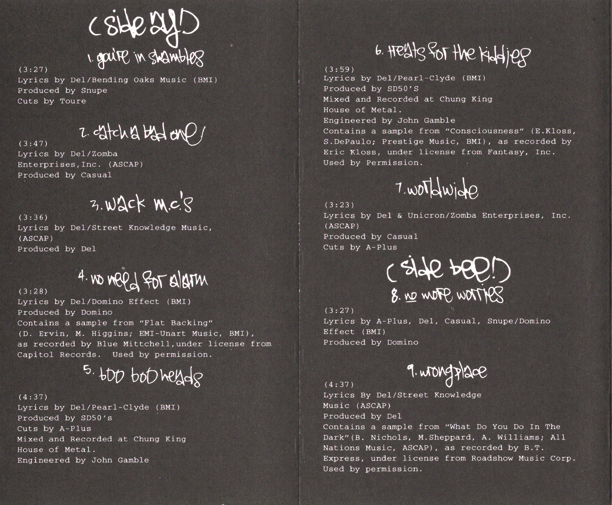 (side ay!)
1. you're in shambles
(3:27)
Lyrics by Del/Bending Oaks Music (BMI)
Produced by Snupe
Cuts by Toure
2. catch a bad one!
(3:47)
Lyrics by Del/Zomba
Enterprises,Inc. (ASCAP)
Produced by Casual
3. wack m.c.'s
(3:36)
Lyrics by Del/Street Knowledge Music,
(ASCAP)
Produced by Del
4. no need for alarm
(3:28)
Lyrics by Del/Domino Effect (BMI)
Produced by Domino
Contains a sample from "Flat Backing"
(D. Ervin, M. Higgins; EMI-Unart Music, BMI),
as recorded by Blue Mittchell,under license from
Capitol Records.  Used by permission.
5. boo boo heads
(4:37)
Lyrics by Del/Pearl-Clyde (BMI)
Produced by SD50's
Cuts by A-Plus
Mixed and Recorded at Chung King
House of Metal.
Engineered by John Gamble
6. treats for the kiddies
(3:59)
Lyrics by Del/Pearl-Clyde (BMI)
Produced by SD50'S
Mixed and Recorded at Chung King
House of Metal.
Engineered by John Gamble
Contains a sample from "Consciousness" (E.Kloss,
S.DePaulo; Prestige Music, BMI), as recorded by
Eric Kloss, under license from Fantasy, Inc.
Used by Permission.
7. worldwide
(3:23)
Lyrics by Del & Unicron/Zomba Enterprises, Inc.
(ASCAP)
Produced by Casual
Cuts by A-Plus
(side bee!)
8. no more worries
(3:27)
Lyrics by A-Plus, Del, Casual, Snupe/Domino
Effect (BMI)
Produced by Domino
9. wrong place
(4:37)
Lyrics By Del/Street Knowledge
Music (ASCAP)
Produced by Del
Contains a sample from "What Do You Do In The
Dark"(B. Nichols, M.Sheppard, A. Williams; All
Nations Music, ASCAP), as recorded by B.T.
Express, under license from Roadshow Music Corp.
Used by permission.